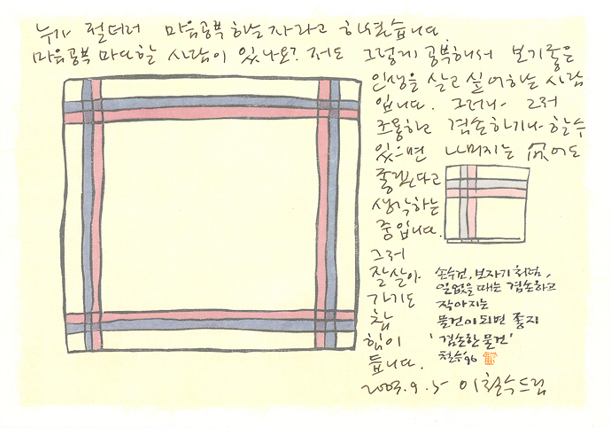 누가 절더러 마음공부 하는 자라고 하셨습니다
마음공부 마다할 사람이 있나요? 저도 그렇게 공부해서 보기좋은
인생을 살고 싶어하는 사람
입니다. 그러나 그저
조용하고 겸손하기나 할 수
있으면 나머지는 없어도
좋겠다고
생각하는
중입니다.
그저
잘 살아
가기도
참
힘이
듭니다.
손수건, 보자기처럼,
일 없을 때는 겸손하고
작아지는
물건이 되면 좋지
'겸손한 물건'
철수 '96
2003. 9. 5 이철수 드림